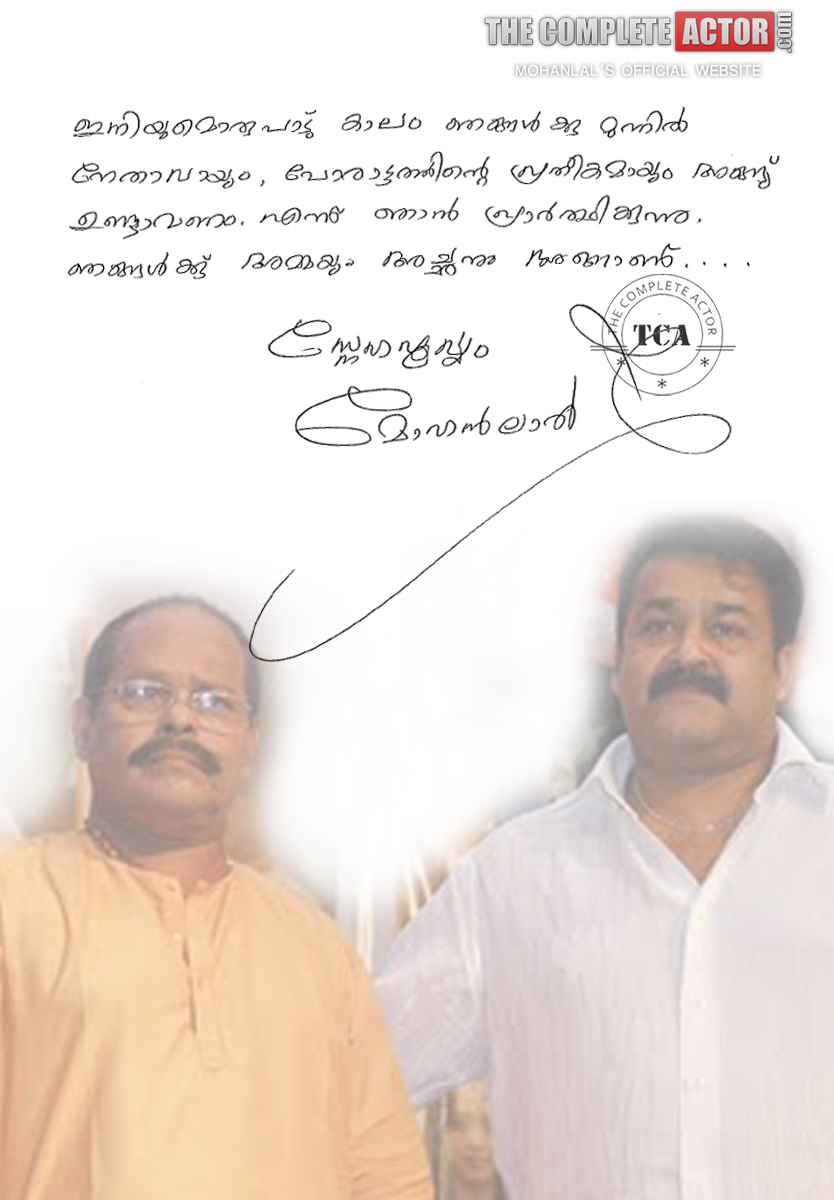 THE COMPLETE ACTOR .com
MOHANLAL'S OFFICIAL WEBSITE
ഇനിയുമൊരുപാട് കാലം ഞങ്ങൾക്കു മുന്നിൽ
നേതാവായും, പോരാട്ടത്തിന്റെ പ്രതീകമായും അങ്ങ്
ഉണ്ടാവണം. എന്ന് ഞാൻ പ്രാർത്ഥിക്കുന്നു.
ഞങ്ങൾക്ക് അമ്മയും അച്ഛനും അങ്ങാണ്....
THE COMPLETE ACTOR
TCA
സ്നേഹപൂർവ്വം
മോഹൻലാൽ